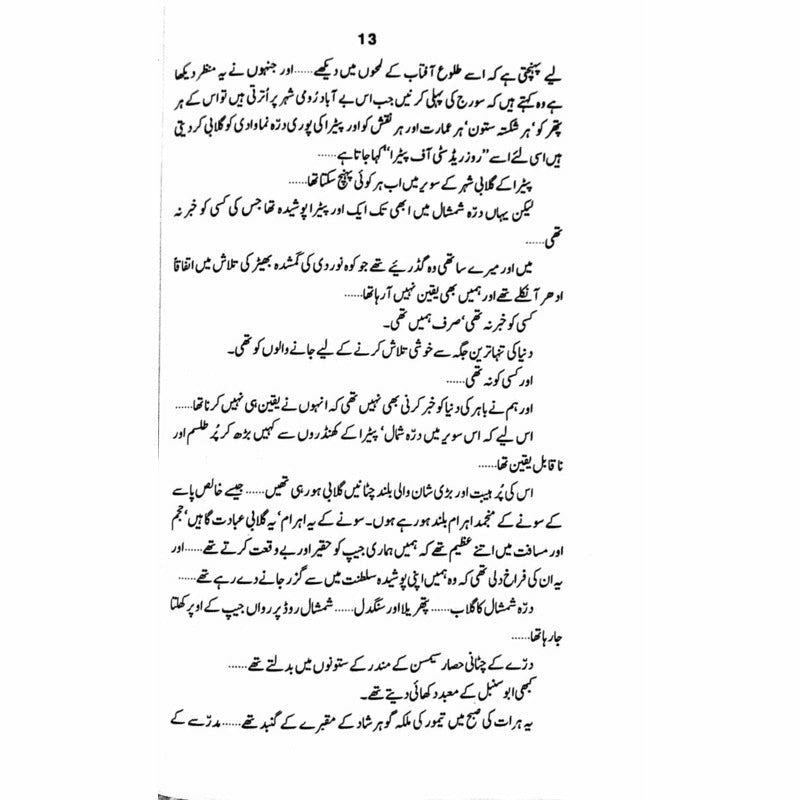 13
لیے پہنچتی ہے کہ اسے طلوع آفتاب کے لمحوں میں دیکھے...... اور جنہوں نے یہ منظر دیکھا
ہے وہ کہتے ہیں کہ سورج کی پہلی کرنیں جب اس بے آباد رُومی شہر پر اُترتی ہیں تو اس کے ہر
پتھر کو‘ ہر شکستہ ستون‘ ہر عمارت اور ہر نقش کو اور پیٹرا کی پوری درّہ نما وادی کو گلابی کر دیتی
ہیں اسی لئے اسے ’’روز ریڈ سٹی آف پیٹرا‘‘ کہا جاتا ہے......
پیٹرا کے گلابی شہر کے سویر میں اب ہر کوئی پہنچ سکتا تھا......
لیکن یہاں درّہ شمشال میں ابھی تک ایک اور پیٹرا پوشیدہ تھا جس کی کسی کو خبر نہ
تھی......
میں اور میرے ساتھی وہ گڈریئے تھے جو کوہ نوردی کی گمشدہ بھیڑ کی تلاش میں اتفاقاً
ادھر آ نکلے تھے اور ہمیں بھی یقین نہیں آ رہا تھا......
کسی کو خبر نہ تھی‘ صرف ہمیں تھی۔
دنیا کی تنہا ترین جگہ سے خوشی تلاش کرنے کے لیے جانے والوں کو تھی۔
اور کسی کو نہ تھی......
اور ہم نے باہر کی دنیا کو خبر کرنی بھی نہیں تھی کہ انہوں نے یقین ہی نہیں کرنا تھا......
اس لیے کہ اس سویر میں درّہ شمال‘ پیٹرا کے کھنڈروں سے کہیں بڑھ کر پُر طلسم اور
ناقابل یقین تھا......
اس کی پُر ہیبت اور بڑی شان والی بلند چٹانیں گلابی ہو رہی تھیں...... جیسے خالص پاسے
کے سونے کے منجمد اہرام بلند ہو رہے ہوں۔ سونے کے یہ اہرام‘ یہ گلابی عبادت گاہیں‘ حجم
اور مسافت میں اتنے عظیم تھے کہ ہمیں ہماری جیپ کو حقیر اور بے وقعت کرتے تھے...... اور
یہ ان کی فراخ دلی تھی کہ وہ ہمیں اپنی پوشیدہ سلطنت میں سے گزر جانے دے رہے تھے......
درّہ شمشال کا گلاب...... پتھریلا اور سنگدل...... شمشال روڈ پر رواں جیپ کے اوپر کھلتا
جا رہا تھا......
درّے کے چٹانی حصار سیمسن کے مندر کے ستونوں میں بدلتے تھے......
کبھی ابو سنبل کے معبد دکھائی دیتے تھے۔
یہ ہرات کی صبح میں تیمور کی ملکہ گوہر شاد کے مقبرے کے گنبد تھے...... مدرّسے کے